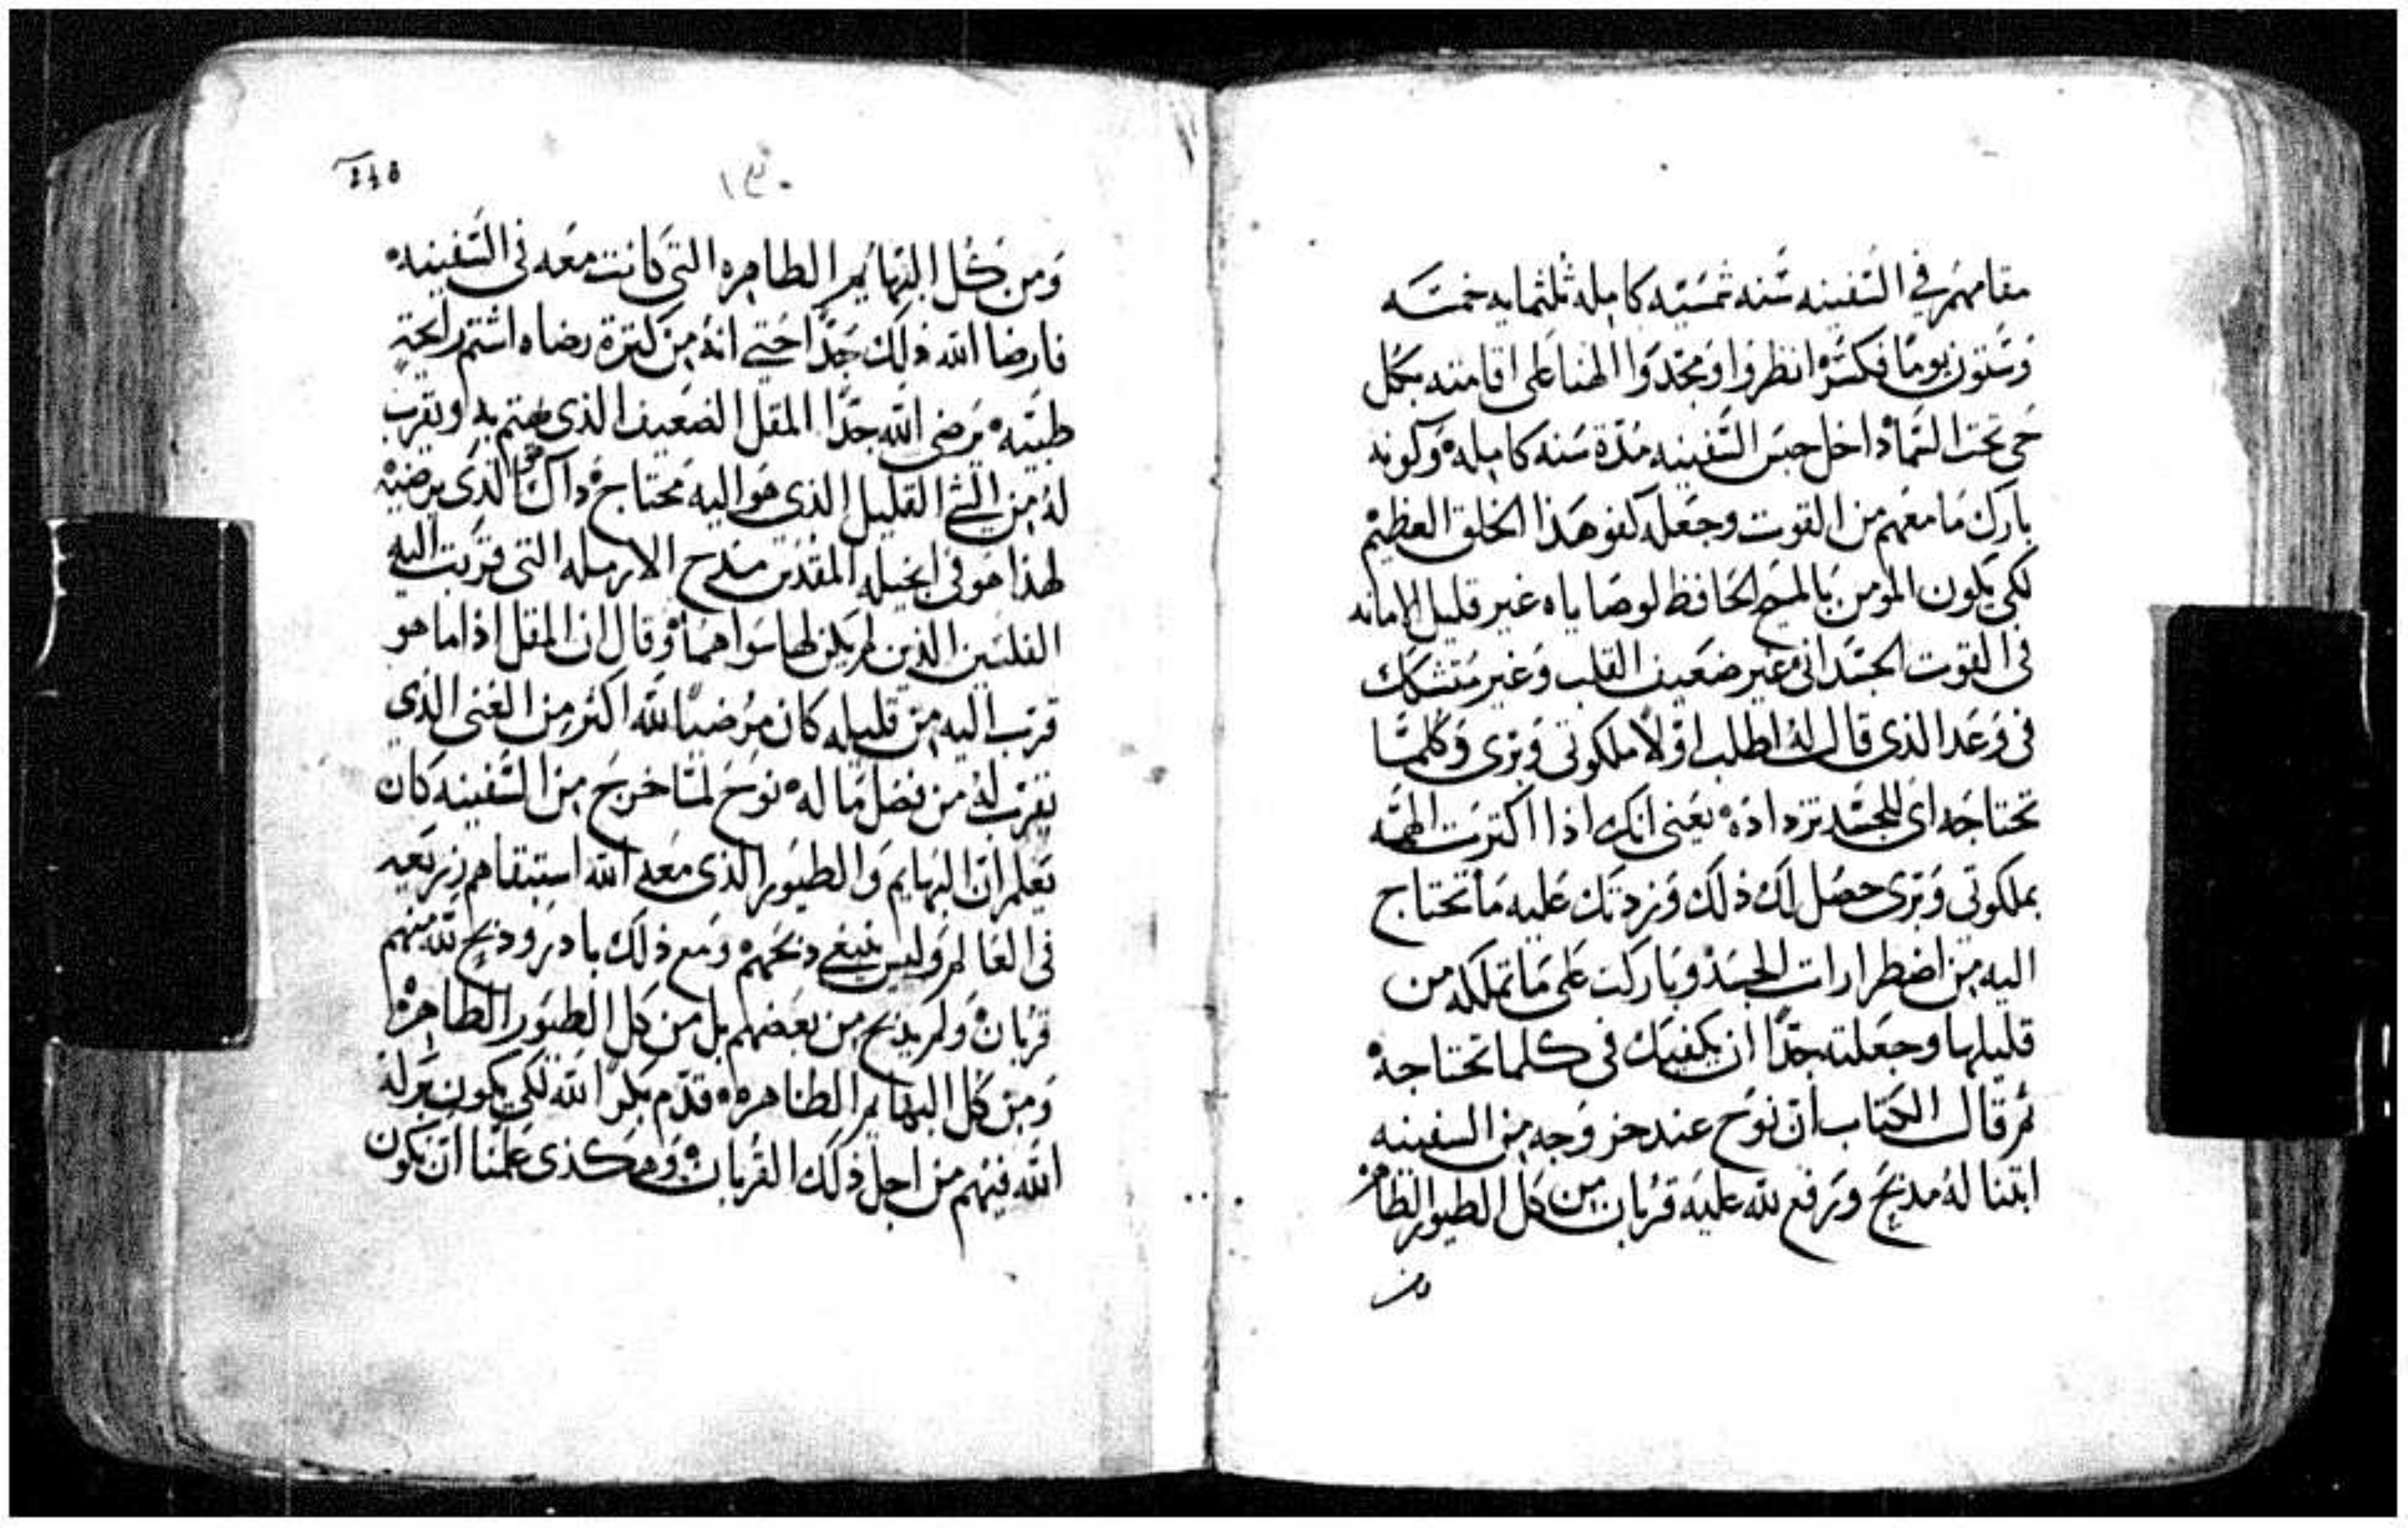 مقامهم في السفينه سنه شمسيه كامله ثلثمايه خمسه
وستون يومًا فكسر انظروا ومجدوا الهنا على اقامته بكل
حى تحت السما داخل حبس السفينه مدة سنه كامله وكونه
بارك ما معهم من القوت وجعله كفو هذا الخلق العظيم
لكى يكون المومن بالمسيح الحافظ لوصاياه غير قليل الامانه
فى القوت الجسدانى غير ضعيف القلب وغير متشكك
فى وعد الذى قال له اطلب اولًا ملكوتى وبرى وكلمًا
تحتاجه اى للجسد تزداده يعنى انك اذا اكترت الهمه
بملكوتى وبرى حصل لك ذلك وزدتك عليه ما تحتاج
اليه من اضطرارات الجسد وباركت على ما تملكه من
قليلها وجعلته جدًا ان يكفيك فى كلما تحتاجه
ثم قال الكتاب ان نوح عند خروجه من السفينه
ابتنا له مدبح ورفع لله عليه قربان من كل الطيور الطاهره
ومن
١٣٠
ومن كل البهايم الطاهره التى كانت معه فى السفينه
فارضا الله ذلك جدًا حتى انه من كترة رضاه اشتم رايحة
طيبه يرضى الله جدًا المقل الضعيف الذى يهتم به ويقرب
له من الشي القليل الذى هو اليه محتاج داك هو الذى يرضيه
لهذا هو فى انجيله المقدس مدح الارمله التى قربت اليه
الفلسين الذين لم يكن لها سواهما وقال ان المقل اذا ما هو
قرب اليه من قليله كان مرضيًا لله اكتر من الغنى الذى
يقرب له من فضل ما له نوح لما خرج من السفينه كان
يعلم ان البهايم والطيور الذى معه الله استبقاهم زريعه
فى العالم وليس ينبغى دبحهم ومع ذلك بادر ودبح لله منهم
قربان ولم يدبح من بعضهم بل من كل الطيور الطاهره
ومن كل البهايم الطاهره قدم بكرًا لله لكى يكون بركه
الله فيهم من اجل ذلك القربان وهكذى علمنا ان نكون